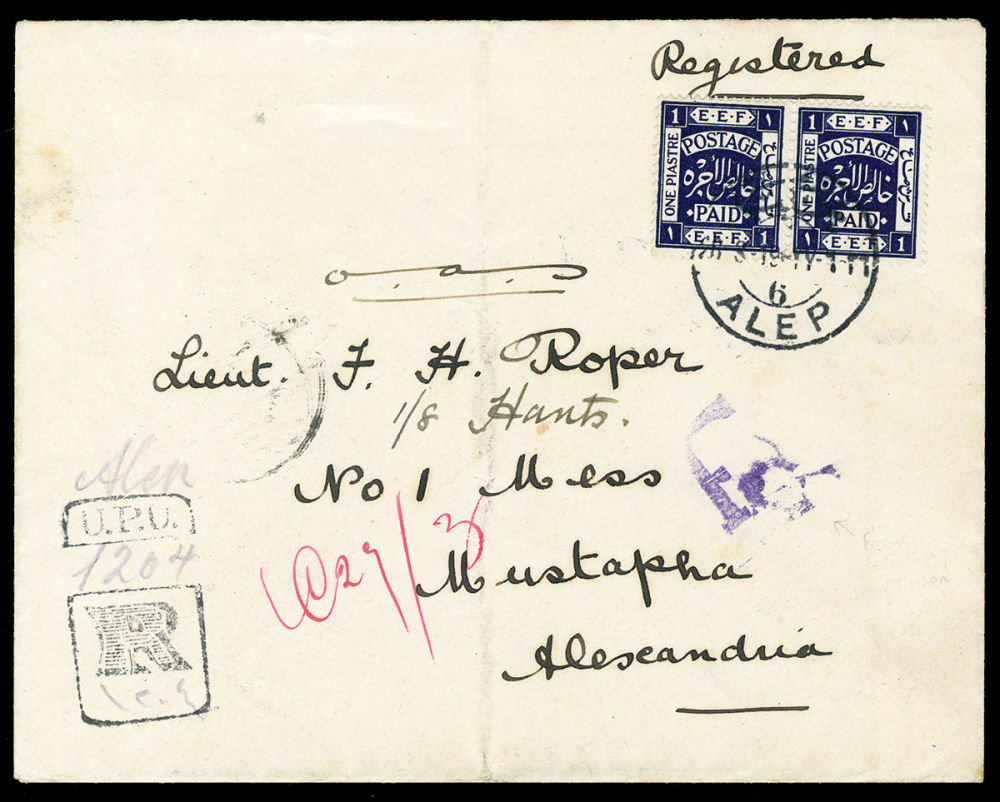 Registered
1 E·E·F ١
POSTAGE
ONE PIASTRE
خالص الأجرة
PAID
١ E·E·F 1
1 E·E·F ١
POSTAGE
ONE PIASTRE
خالص الأجرة
PAID
١ E·E·F 1
6
ALEP
o.a.s
Lieut. F. H. Roper
1/8 Hants.
No 1 Mess
Mustapha
Alexandria
27/3
Alep
U.P.U.
1204
R
١٢٠٤